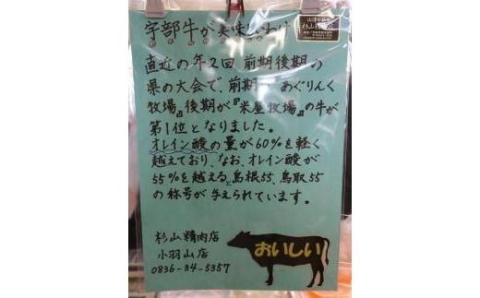 宇部牛が美味しいわけ
直近の年2回 前期後期の
県の大会で、前期 あぐりんく
牧場』後期が『米屋牧場』の牛が
第1位となりました。
オレイン酸の量が60%を軽く
越えており、なお、オレイン酸が
55%を越えると島根55、鳥取55
の称号が与えられています。
杉山精肉店
小羽山店
0836-34-5357
おいしい